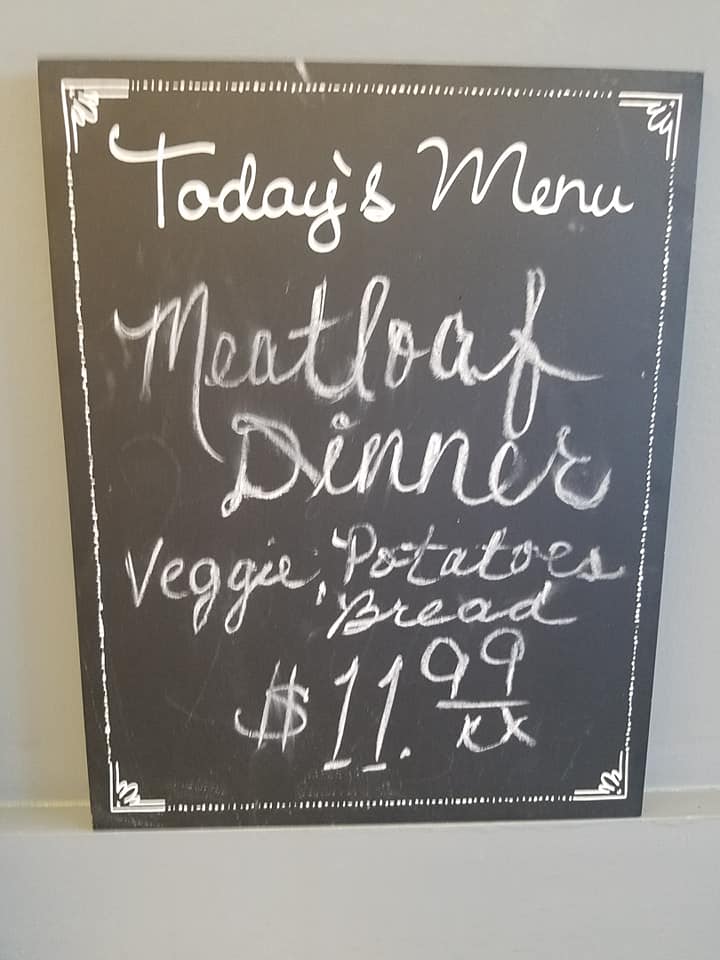 Today's Menu
Meatloaf
Dinner
Veggie, Potatoes
Bread
$11.99
xx